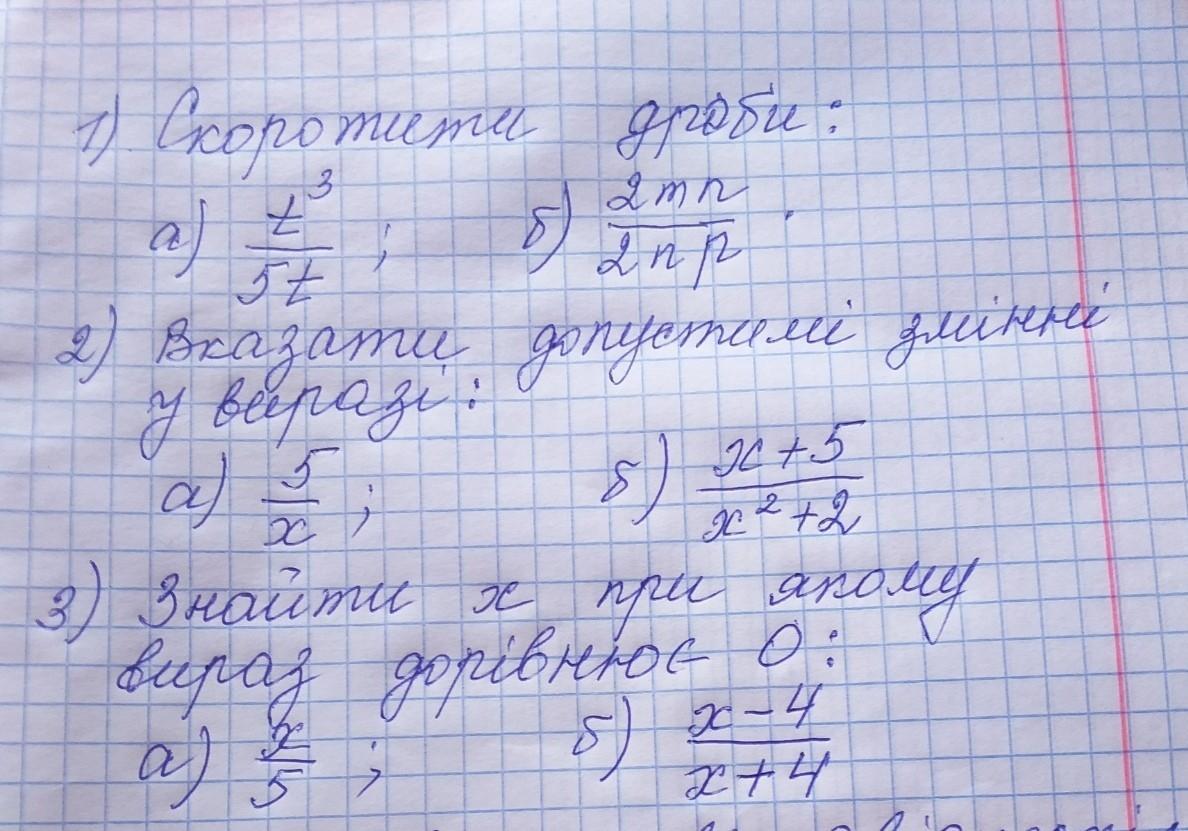 1) Скоротити дроби:
а) t³/5t ; б) 2mn/2np .
2) Вказати допустимі змінні
у виразі:
а) 5/x ; б) x+5/x²+2
3) Знайти x при якому
вираз дорівнює 0:
а) x/5 ; б) x-4/x+4